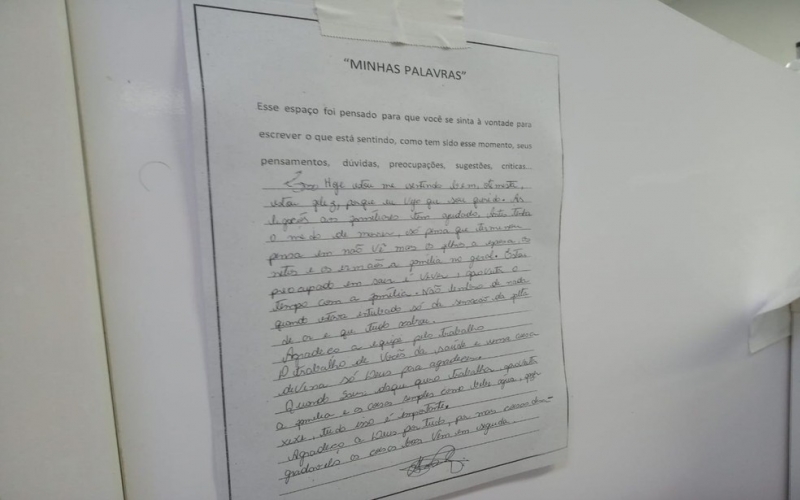 "MINHAS PALAVRAS"
Esse espaço foi pensado para que você se sinta à vontade para
escrever o que está sentindo, como tem sido esse momento, seus
pensamentos, dúvidas, preocupações, sugestões, críticas...
Hoje estou me sentindo bem
estou feliz, porque eu vejo que
ligações aos familiares tem ajudado,
o medo de morrer, só pensa que
pensa em não vê mais os filhos, a esposa, os
netos e os irmãos a família no geral. Estou
preocupado em sair e viver, aproveita o
tempo com a família. Não lembro de nada
quando estava intubado só da sensação da falta
de ar e que tudo acabou.
Agradeço a equipe pelo trabalho
O trabalho de vocês da saúde é uma coisa
divina só Deus para agradecer.
Quando sair daqui quero trabalha, aproveita
a família e as coisas simples como bebe água,
xixi, tudo isso é importante.
Agradeço a Deus por tudo,
as coisas boas vem em seguida.